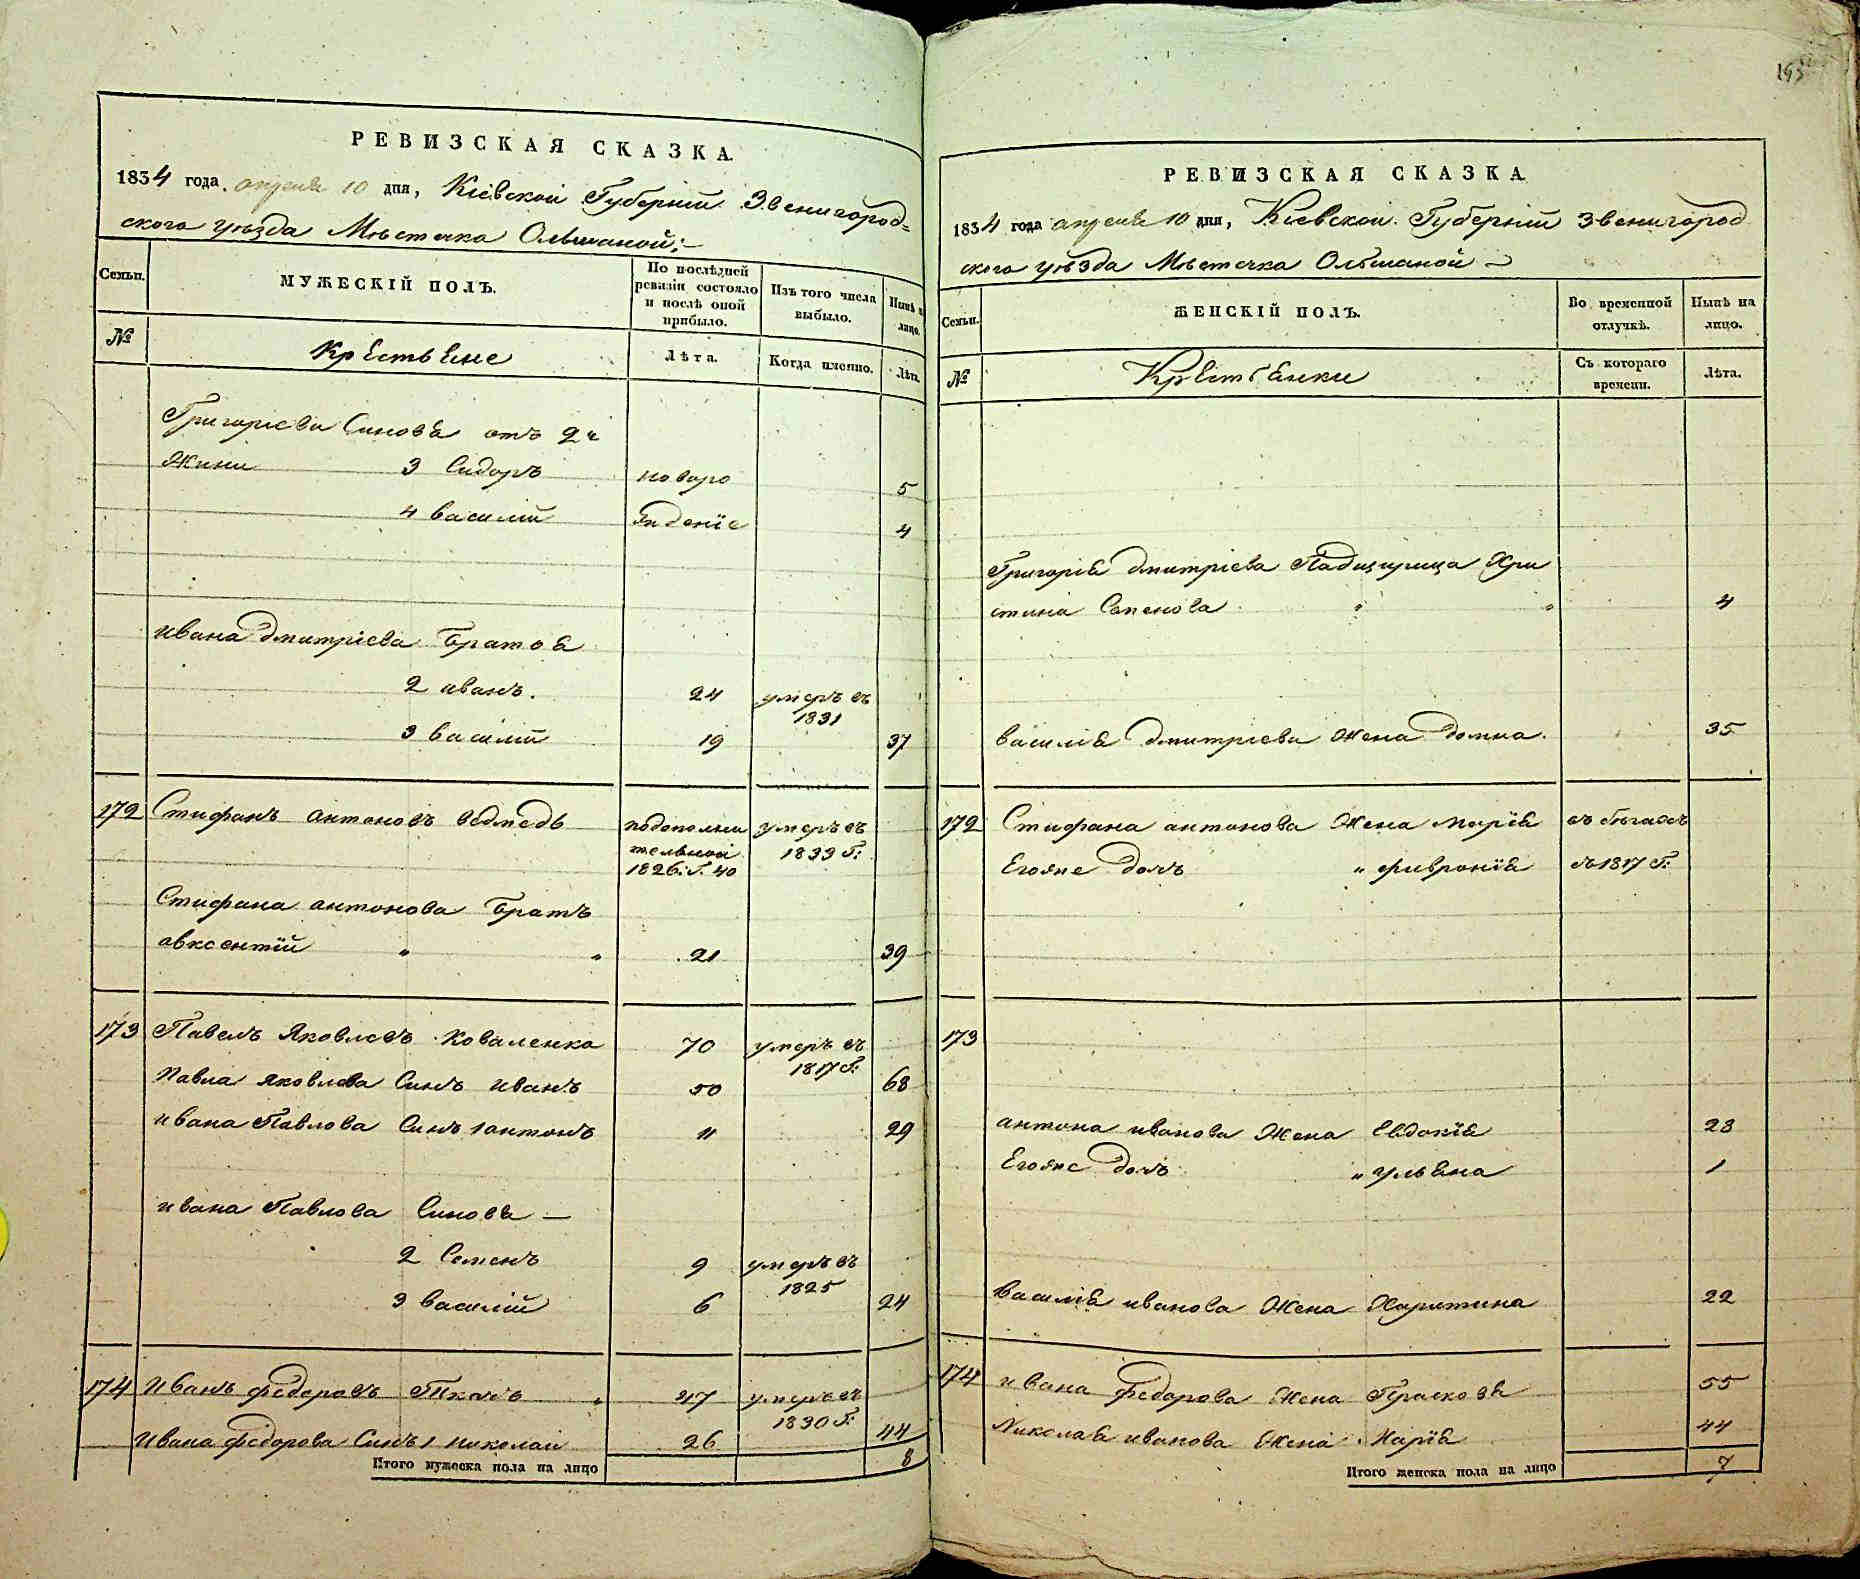 РЕВИЗСКАЯ СКАЗКА.
1834 года. апреля 10 дня, Кіевской Губерніи Звенигород=
ского уѣзда Мѣстечка Ольшаной;—
Семьи.
МУЖЕСКІЙ ПОЛЪ.
По послѣдней ревизіи состояло и послѣ оной прибыло.
Изъ того числа выбыло.
Нынѣ на лицо.
№
Крѣстьяне
Лѣта.
Когда именно.
Лѣта.
Григоріева Синовя отъ 2й
Жини 3 Сидоръ новоро 5
4 василій жденіе 4
ивана дмитріева братоя
2 иванъ. 24 умеръ въ
1831
3 василій 19 37
172 Стифанъ антоновъ ведмедь подополни умеръ въ
тельной 1833 Г:
1826: Г. 40
Стифана антонова братъ
авксентій " " 21 39
173 Павелъ Яковлевъ Коваленко 70 умеръ въ
1817 Г:
Павла яковлева Синъ иванъ 50 68
ивана Павлова Синъ 1 антонъ 11 29
ивана Павлова Синовя —
2 Семенъ 9 умеръ въ
1825
3 василій 6 24
174 Иванъ федоровъ Ткачъ " 47 умеръ въ
1830 Г:
Ивана федорова Синъ 1 николай 26 44
Итого мужеска пола на лицо 8
РЕВИЗСКАЯ СКАЗКА.
1834 года апреля 10 дня, Кіевской Губерніи Звенигород
ского уѣзда Мѣстечка Ольшаной —
Семьи.
ЖЕНСКІЙ ПОЛЪ.
Во временной отлучкѣ.
Нынѣ на лицо.
№
Крѣстьянки
Съ котораго времени.
Лѣта.
Григорія дмитріева Падищирица Хри
стина Семенова " " 4
василія дмитріева Жена домна. 35
172 Стифана антонова Жена марія въ бѣгахъ
Егояже дочъ " фивронія съ 1817 Г:
173
антона иванова Жена Евдокія 28
Егояже дочъ " ульяна 1
василія иванова Жена Харитина 22
174 ивана федорова Жена Прасковя 55
Николая иванова Жена Марія 44
Итого женска пола на лицо 7